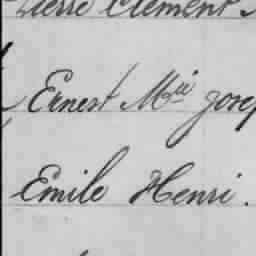 Pierre Clément
Ernest Mie Josep
Emile Henri.